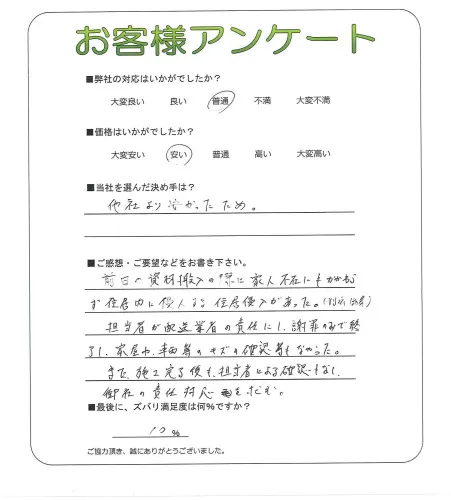 お客様アンケート
■弊社の対応はいかがでしたか?
大変良い 良い 普通 不満 大変不満
■価格はいかがでしたか?
大変安い 安い 普通 高い 大変高い
■当社を選んだ決め手は?
他社より安かったため。
■ご感想・ご要望などをお書き下さい。
前日の資材搬入の際に家人不在にもかかわらず
住居内に侵入する住居侵入があった。
担当者が配送業者の責任にし、謝罪のみで終
了し、家屋や、車両等のキズの確認等もなかった。
また、施工完了後も、担当者による確認もなし、
御社の責任対応を求む。
■最後に、ズバリ満足度は何%ですか?
10 %
ご協力頂き、誠にありがとうございました。